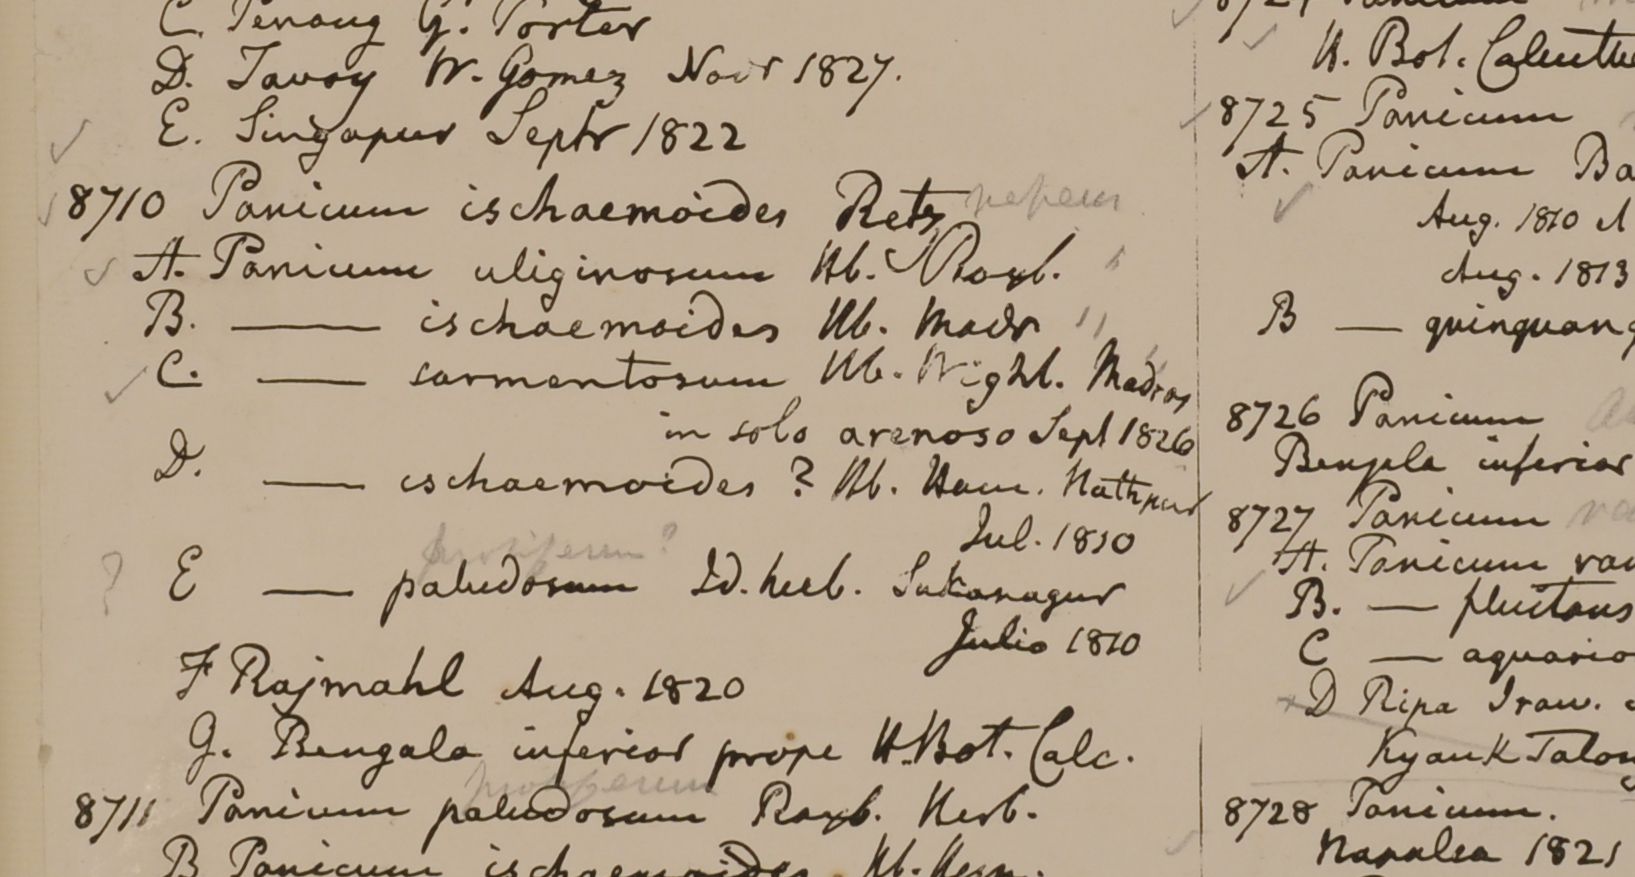 C. Penang G. Porter
D. Tavoy W. Gomez Novr 1827.
E. Singapur Septr 1822
8710 Panicum ischaemoides Retz repens
A. Panicum uliginosum Hb. Roxb. "
B. — ischaemoides Hb. Madr "
C. — sarmentosum Hb. Wight. Madras
in solo arenoso Sept 1826
D. — ischaemoides ? Hb. Ham. Nathpur
Jul. 1810
proliferum ?
? E — paludosum Id. herb. Sukanagur
Julio 1810
F Rajmahl Aug. 1820
G. Bengala inferior prope H. Bot. Calc.
proliferum
8711 Panicum paludosum Roxb. Herb.
B Panicum ischaemoides Hb. Ham.
H. Bot. Calcutta
8725 Panicum
A. Panicum Ba
Aug. 1810
Aug. 1813
B — quinquang
8726 Panicum
Bengala inferior
8727 Panicum
A. Panicum
B. — fluitans
C — aquatic
D Ripa Iraw.
Kyauk Talon
8728 Panicum.
Napalea 1821